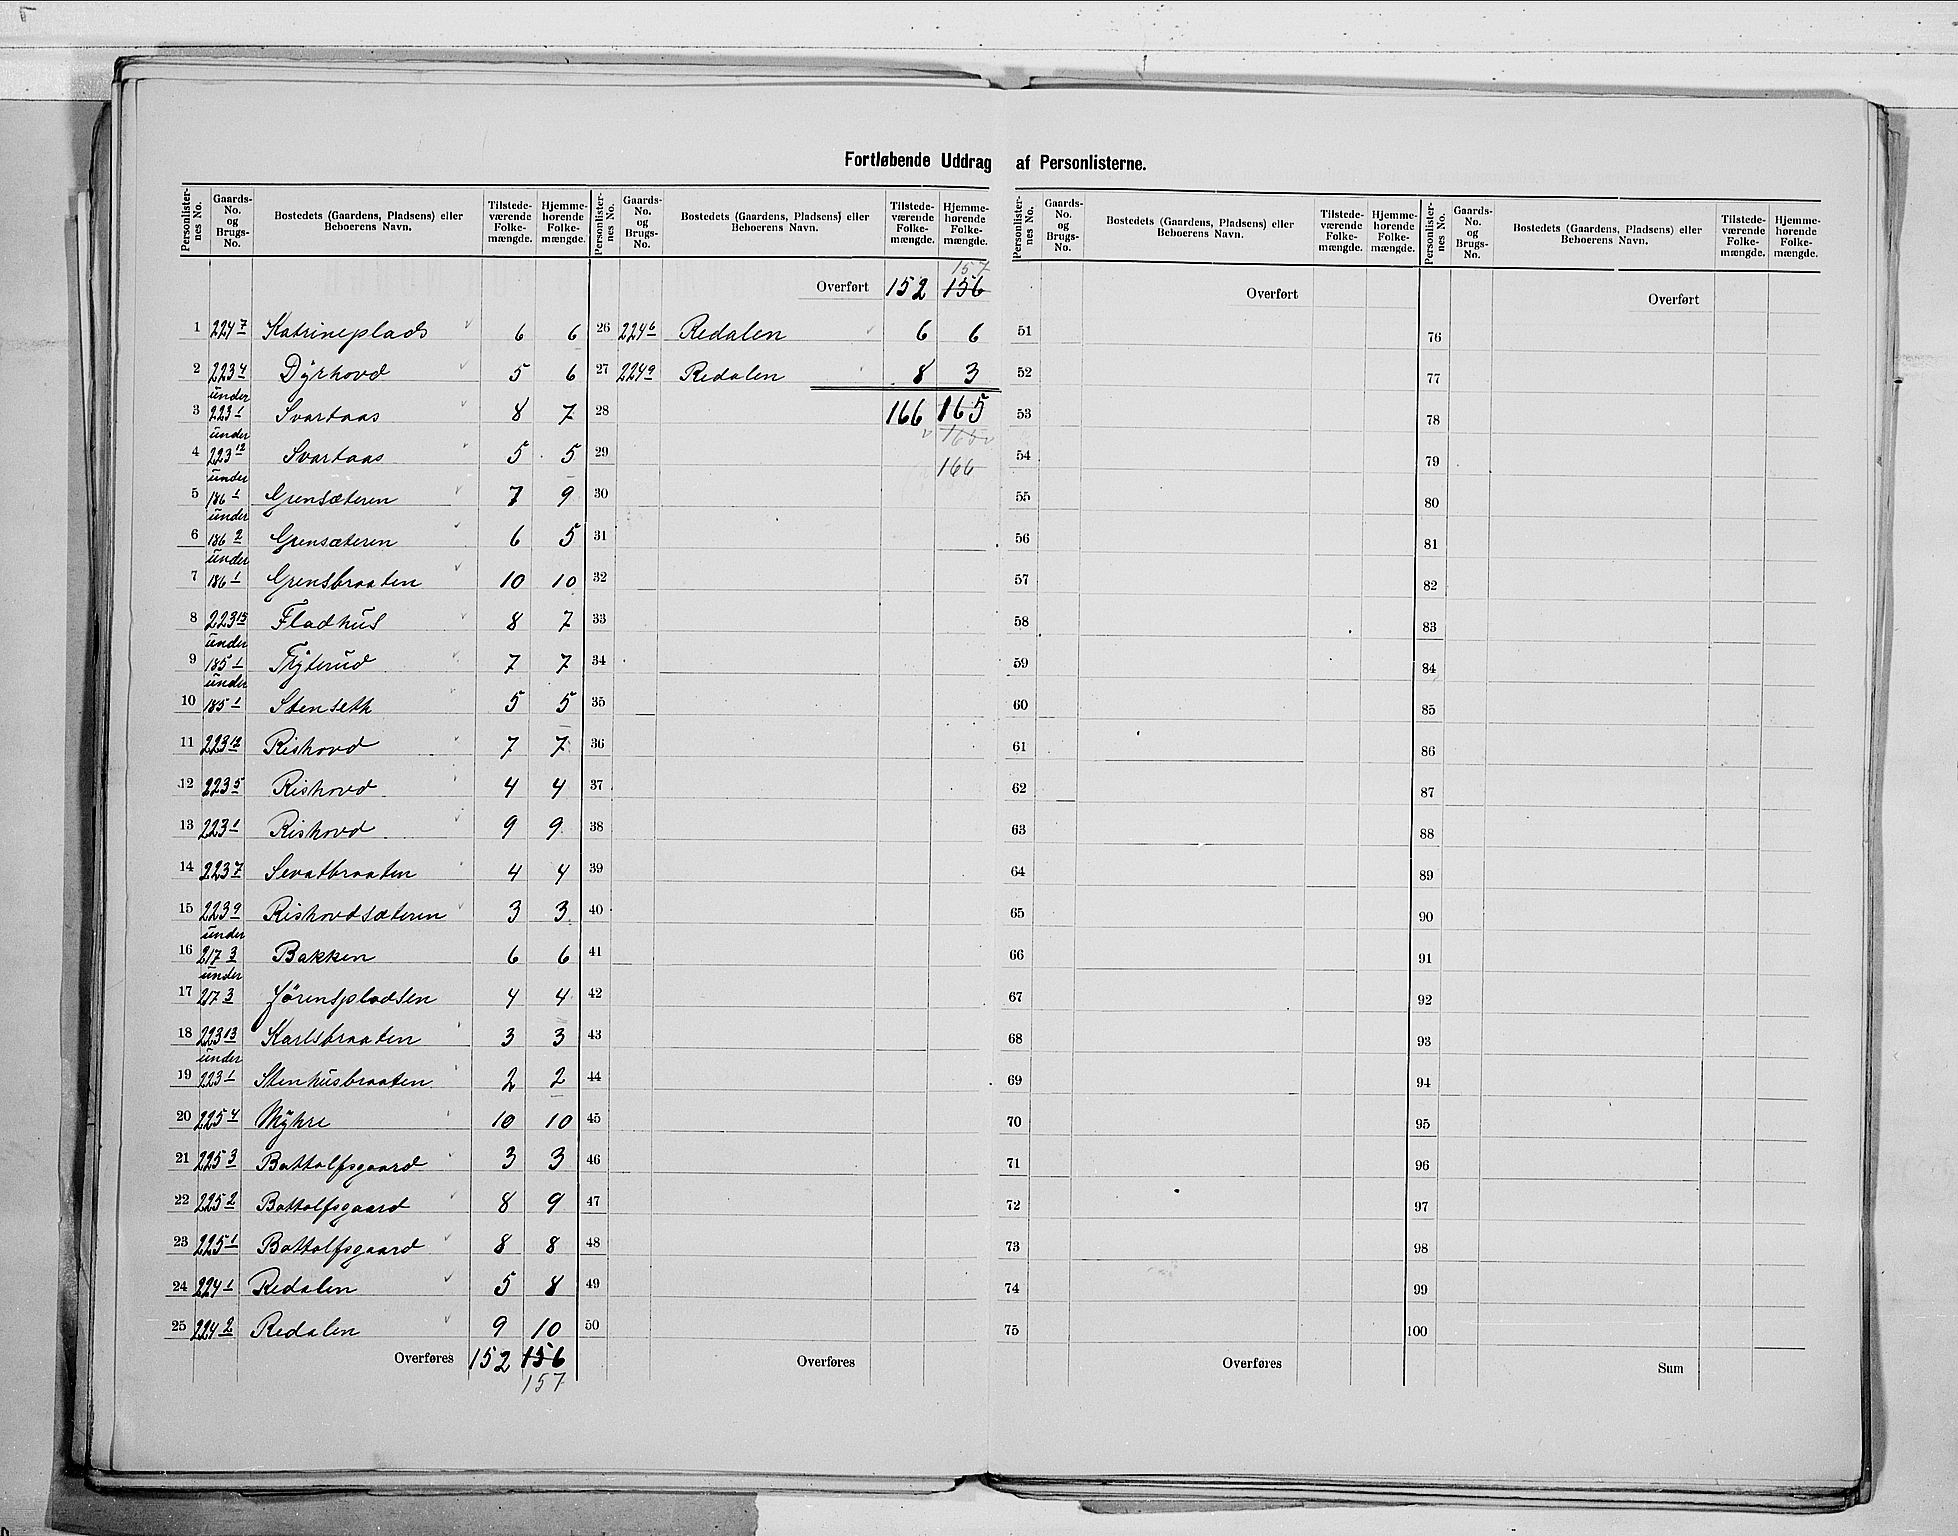 Fortløbende Uddrag af Personlisterne.
Personlisternes No. Gaards-No. og Brugs-No. Bostedets (Gaardens, Pladsens) eller Beboerens Navn. Tilstedeværende Folkemængde. Hjemmehørende Folkemængde.
1 224 7 Katrineplads 6 6
2 223 4 Dÿrhovd 5 6
3 under 223 1 Svartaas 8 7
4 under 223 12 Svartaas 5 5
5 under 186 1 Grensæteren 7 9
6 under 186 2 Grensæteren 6 5
7 under 186 1 Grensbraaten 10 10
8 223 15 Fladhus 8 7
9 under 185 1 Trÿterud 7 7
10 under 185 1 Stenseth 5 5
11 223 12 Rishovd 7 7
12 223 5 Rishovd 4 4
13 223 1 Rishovd 9 9
14 223 7 Sevatbraaten 4 4
15 223 9 Rishovdsæteren 3 3
16 under 217 3 Bakken 6 6
17 under 217 3 Jørenspladsen 4 4
18 223 13 Karlsbraaten 3 3
19 under 223 1 Stenhusbraaten 2 2
20 225 4 Mÿhre 10 10
21 225 3 Bottolfsgaard 3 3
22 225 2 Bottolfsgaard 8 9
23 225 1 Bottolfsgaard 8 8
24 224 1 Redalen 5 8
25 224 2 Redalen 9 10
Overføres 152 156
157
Personlisternes No. Gaards-No. og Brugs-No. Bostedets (Gaardens, Pladsens) eller Beboerens Navn. Tilstedeværende Folkemængde. Hjemmehørende Folkemængde.
157
Overført 152 156
26 224 6 Redalen 6 6
27 224 9 Redalen 8 3
28 166 165
165
29
166
30
31
32
33
34
35
36
37
38
39
40
41
42
43
44
45
46
47
48
49
50
Overføres
Personlisternes No. Gaards-No. og Brugs-No. Bostedets (Gaardens, Pladsens) eller Beboerens Navn. Tilstedeværende Folkemængde. Hjemmehørende Folkemængde.
Overført
51
52
53
54
55
56
57
58
59
60
61
62
63
64
65
66
67
68
69
70
71
72
73
74
75
Overføres
Personlisternes No. Gaards-No. og Brugs-No. Bostedets (Gaardens, Pladsens) eller Beboerens Navn. Tilstedeværende Folkemængde. Hjemmehørende Folkemængde.
Overført
76
77
78
79
80
81
82
83
84
85
86
87
88
89
90
91
92
93
94
95
96
97
98
99
100
Sum